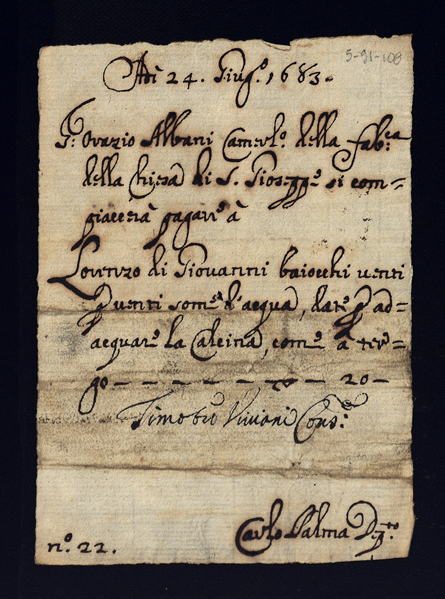 5-91-108
Adì 24. Giug.º 1683.
S.r Orazio Albani Camerl.º della fab.ca
della Chiesa di S. Gioseppe si com-
piacerà pagare à
Lorenzo di Giovanni baiocchi venti
p venti some d'acqua, date p ad-
acquare la Calcina, come à ter-
go - - - - - - - 20 -
Timoteo Viviani Cons.e
Carlo Palma D.to
n.º 22.